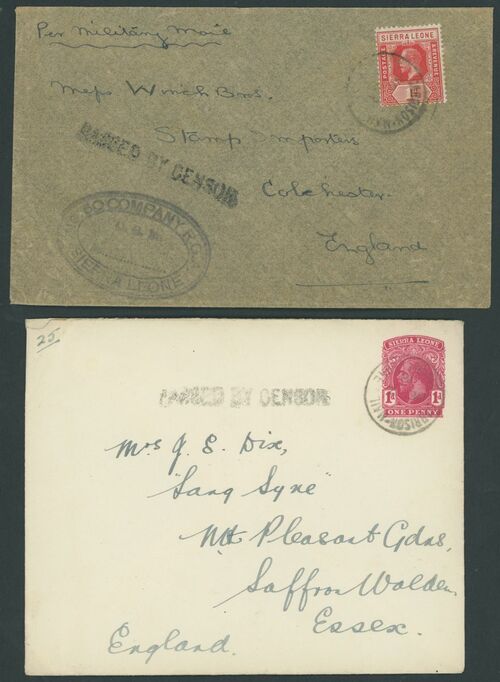 Per Military Mail
SIERRA LEONE
POSTAGE
REVENUE
Messrs Winch Bros.
Stamp Importers
Colchester.
England
PASSED BY CENSOR
COMPANY R.G.A.
SIERRA LEONE
25
SIERRA LEONE
1d 1d
ONE PENNY
PASSED BY CENSOR
Mrs J. E. Dix,
"Lang Syne"
Mt Pleasant Gdns,
Saffron Walden
Essex.
England.